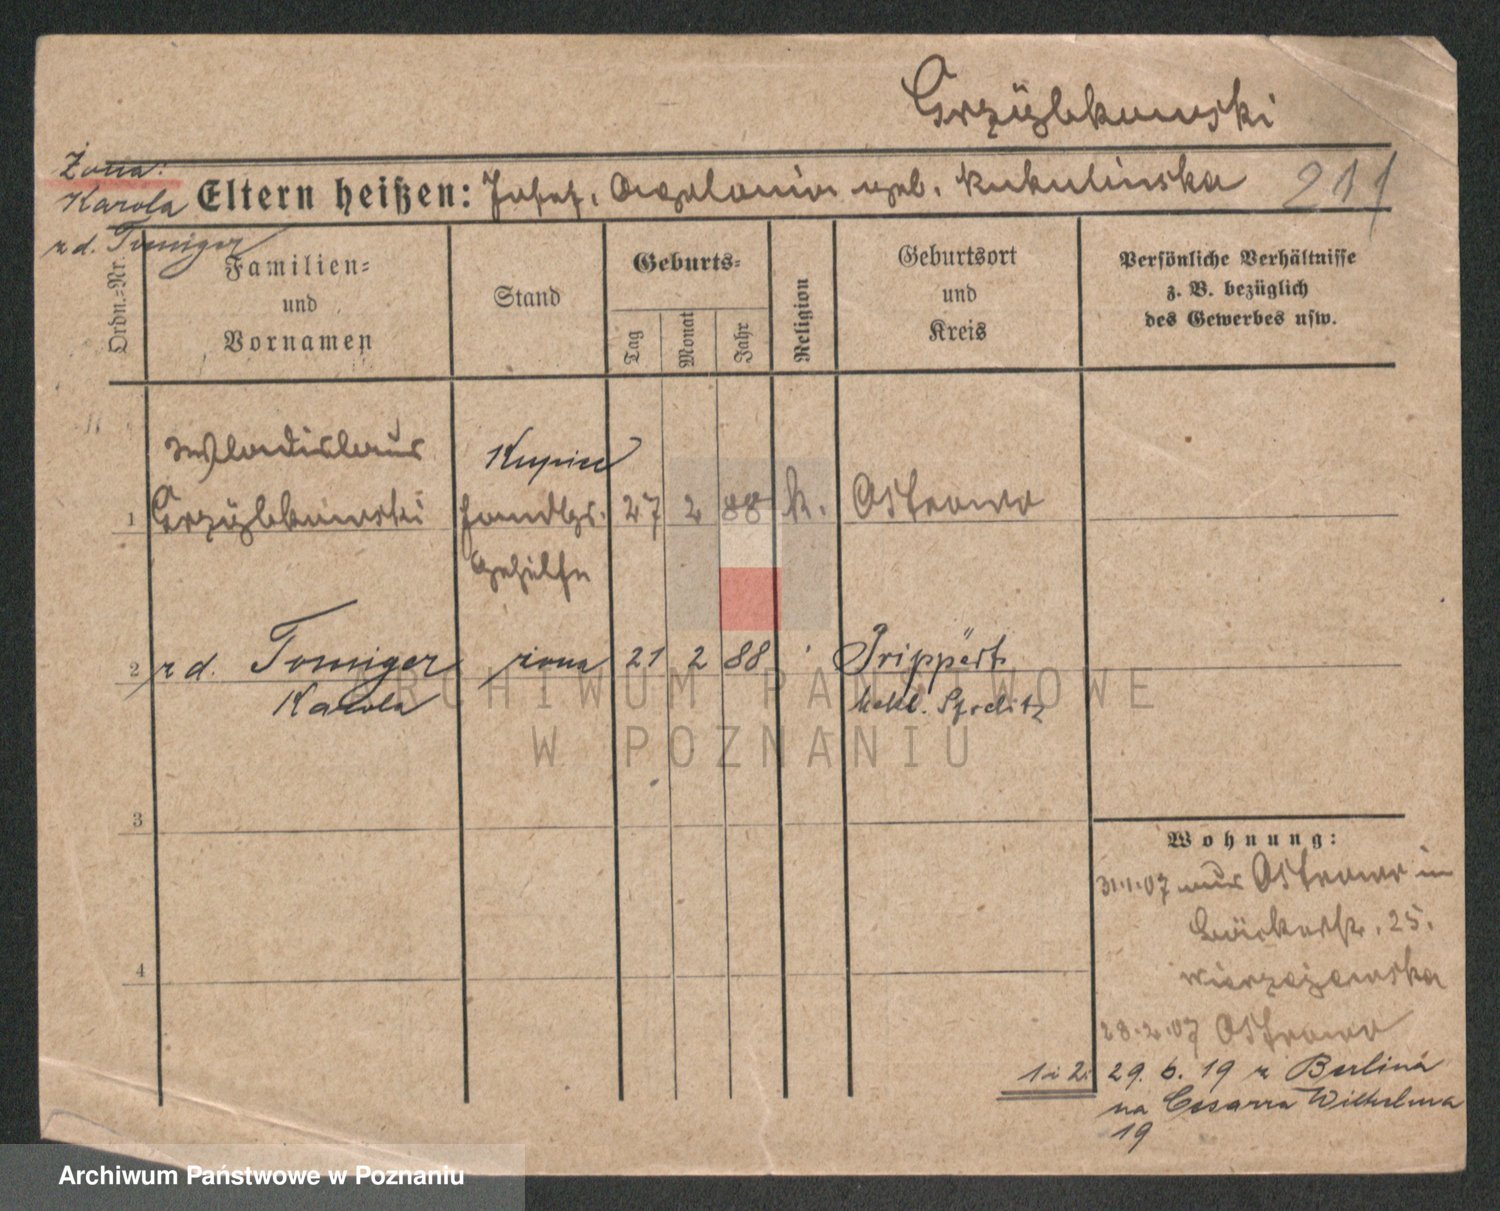 Grzybkowski
Żona:
Karola
z d. Tominger
Eltern heißen: Josef, Apolonia geb. Kukulinska 211
Ordn.-Nr.
Familien-
und
Vornamen
Stand
Geburts-
Tag
Monat
Jahr
Religion
Geburtsort
und
Kreis
Persönliche Verhältnisse
z. B. bezüglich
des Gewerbes usw.
Wladislaus
Kupiec
1 Grzybkowski Handlgs. 27 2 88 k. Ostrowo
Gehilfe
2 z d. Tominger żona 21 2 88 Prippert
Karola Mekl. Strelitz
3
4
Wohnung:
31.1.07 aus Ostrowo in
Bäckerstr. 25.
28.2.07 Ostrowo
1 i 2. 29. 6. 19 z Berlina
na Cesarza Wilhelma
19
ARCHIWUM PAŃSTWOWE
W POZNANIU
Archiwum Państwowe w Poznaniu